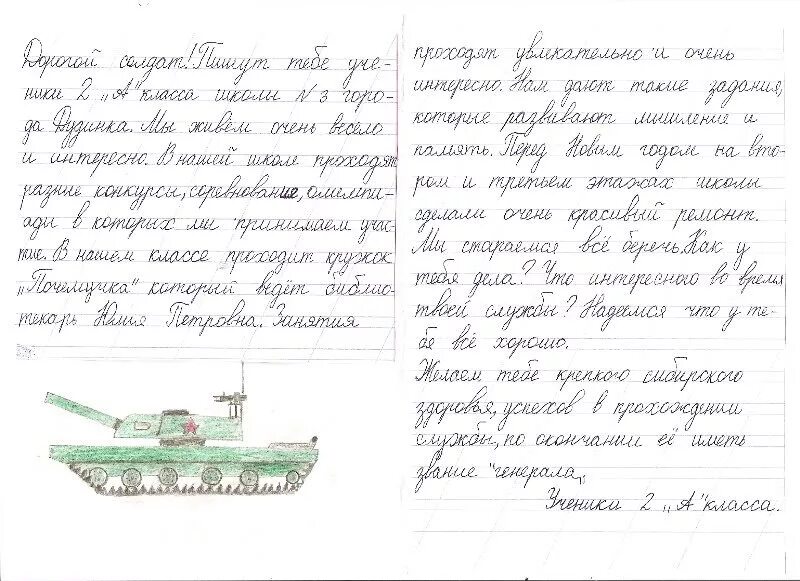 Дорогой солдат! Пишут тебе уче-
ники 2 „А" класса школы №3 горо-
да Дудинка. Мы живём очень весело
и интересно. В нашей школе проходят
разние конкурсы, соревнование, олемпи-
ади в которых ми принимаем учас-
тие. В нашем классе проходит кружок
„Почемучка" который ведёт библио-
текарь Юлия Петровна. Занятия
проходят увлекательно и очень
интересно. Нам дают такие задания,
которые развивают мишление и
память. Перед Новим годом на вто-
ром и третьем этажах школы
сделали очень красивый ремонт.
Мы стараемся всё беречь. Как у
тебя дела? Что интересного во время
твоей службы? Надеемся что у те-
бя всё хорошо.
Желаем тебе крепкого сибирского
здоровья, успехов в прохождении
службы, по окончании её иметь
звание "генерала„
Ученики 2 „А" класса.